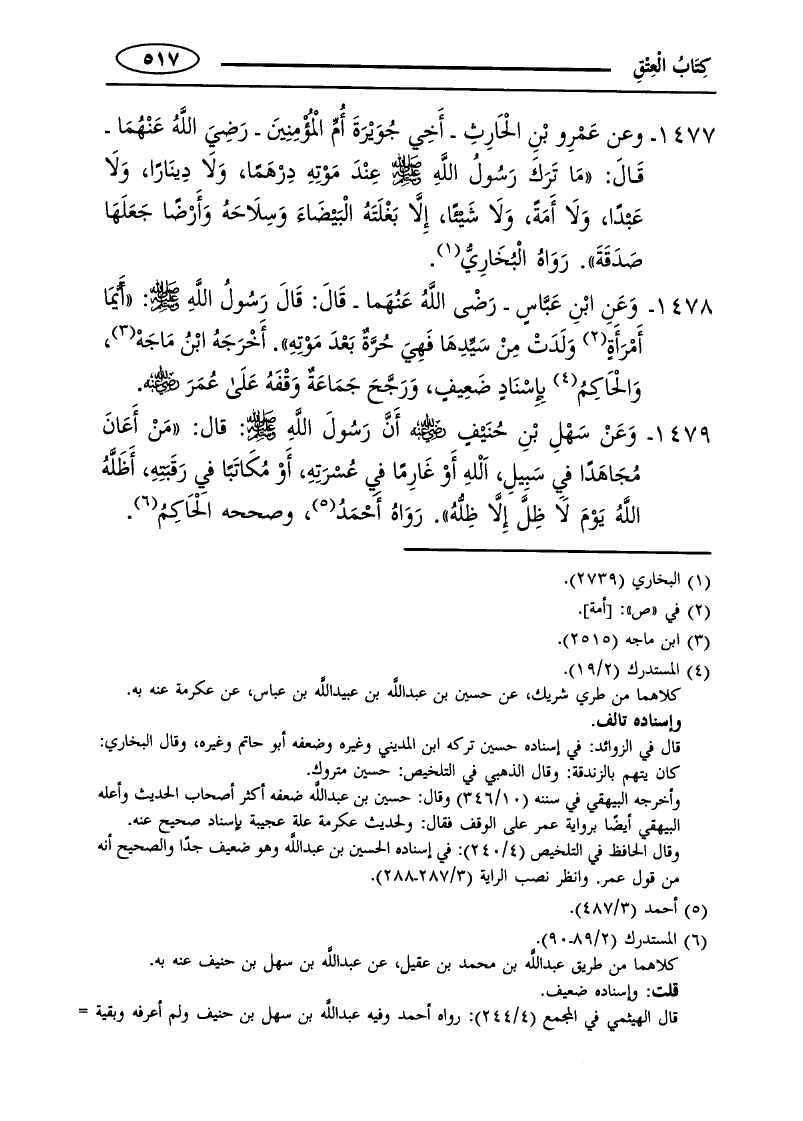 كِتَابُ الْعِتْقِ ٥١٧
١٤٧٧ـ وعن عَمْرِو بْنِ الْحَارِثِ ـ أَخِي جُوَيْرَةَ أُمِّ الْمُؤْمِنِينَ ـ رَضِيَ اللَّهُ عَنْهُمَا ـ
قَالَ: «مَا تَرَكَ رَسُولُ اللَّهِ ﷺ عِنْدَ مَوْتِهِ دِرْهَمًا، وَلَا دِينَارًا، وَلَا
عَبْدًا، وَلَا أَمَةً، وَلَا شَيْئًا، إِلَّا بَغْلَتَهُ الْبَيْضَاءَ وَسِلَاحَهُ وَأَرْضًا جَعَلَهَا
صَدَقَةً». رَوَاهُ الْبُخَارِيُّ(١).
١٤٧٨ـ وَعَنِ ابْنِ عَبَّاسٍ ـ رَضْى اللَّهُ عَنْهُما ـ قَالَ: قَالَ رَسُولُ اللَّهِ ﷺ: «أَيُّمَا
أَمْرَأَةٍ(٢) وَلَدَتْ مِنْ سَيِّدِهَا فَهِيَ حُرَّةٌ بَعْدَ مَوْتِهِ». أَخْرَجَهُ ابْنُ مَاجَهْ(٣)،
وَالْحَاكِمُ(٤) بِإِسْنَادٍ ضَعِيفٍ، وَرَجَّحَ جَمَاعَةٌ وَقْفَهُ عَلَىٰ عُمَرَ رضي الله عنه.
١٤٧٩ـ وَعَنْ سَهْلِ بْنِ حُنَيْفٍ رضي الله عنه أَنَّ رَسُولَ اللَّهِ ﷺ: قال: «مَنْ أَعَانَ
مُجَاهَدًا فِي سَبِيلِ، اَللهِ أَوْ غَارِمًا فِي عُسْرَتِهِ، أَوْ مُكَاتَبًا فِي رَقَبَتِهِ، أَظَلَّهُ
اللَّهُ يَوْمَ لَا ظِلَّ إِلَّا ظِلُّهُ». رَوَاهُ أَحْمَدُ(٥)، وصححه الْحَاكِمُ(٦).
(١) البخاري (٢٧٣٩).
(٢) في «ص»: [أمة].
(٣) ابن ماجه (٢٥١٥).
(٤) المستدرك (١٩/٢).
كلاهما من طري شريك، عن حسين بن عبدالله بن عبيدالله بن عباس، عن عكرمة عنه به.
وإسناده تالف.
قال في الزوائد: في إسناده حسين تركه ابن المديني وغيره وضعفه أبو حاتم وغيره، وقال البخاري:
كان يتهم بالزندقة: وقال الذهبي في التلخيص: حسين متروك.
وأخرجه البيهقي في سننه (٣٤٦/١٠) وقال: حسين بن عبدالله ضعفه أكثر أصحاب الحديث وأعله
البيهقي أيضًا برواية عمر على الوقف فقال: ولحديث عكرمة علة عجيبة بإسناد صحيح عنه.
وقال الحافظ في التلخيص (٢٤٠/٤): في إسناده الحسين بن عبدالله وهو ضعيف جدًا والصحيح أنه
من قول عمر. وانظر نصب الراية (٢٨٧/٣-٢٨٨).
(٥) أحمد (٤٨٧/٣).
(٦) المستدرك (٨٩/٢-٩٠).
كلاهما من طريق عبدالله بن محمد بن عقيل، عن عبدالله بن سهل بن حنيف عنه به.
قلت: وإسناده ضعيف.
قال الهيثمي في المجمع (٢٤٤/٤): رواه أحمد وفيه عبدالله بن سهل بن حنيف ولم أعرفه وبقية =